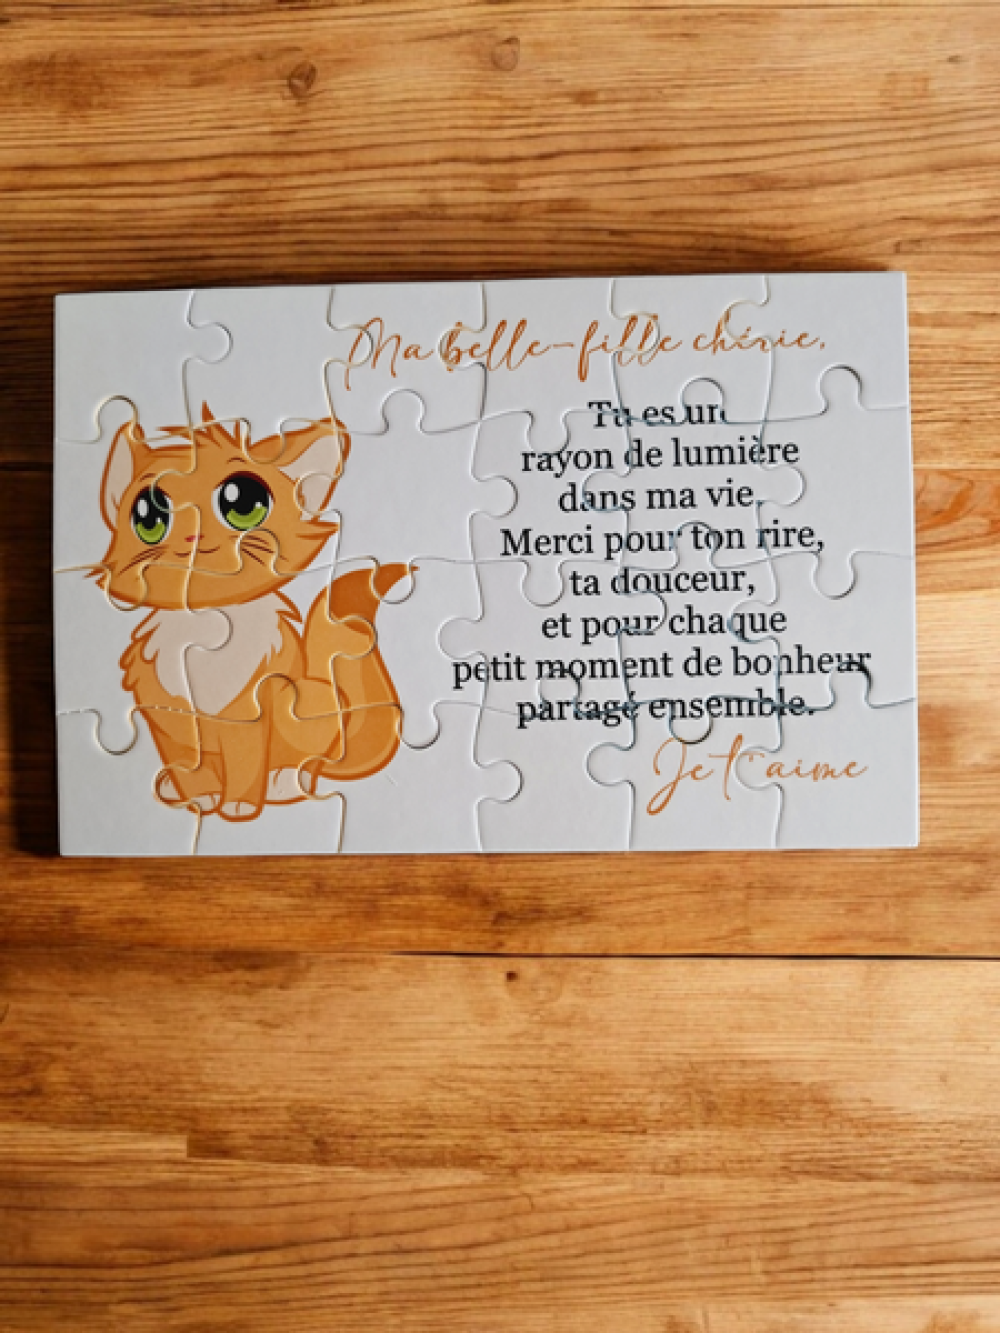 Ma belle-fille chérie,
Tu es un
rayon de lumière
dans ma vie.
Merci pour ton rire,
ta douceur,
et pour chaque
petit moment de bonheur
partagé ensemble.
Je t'aime